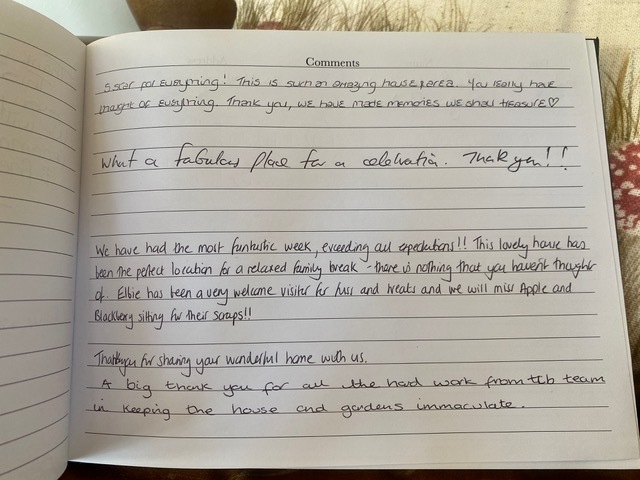 Comments
5 star for everything! This is such an amazing house & area. You really have
thought of everything. Thank you, we have made memories we shall treasure♡
What a fabulous place for a celebration. Thank you!!
We have had the most funtastic week, exceeding all expectations!! This lovely house has
been the perfect location for a relaxed family break - there is nothing that you haven't thought
of. Elbie has been a very welcome visitor for fuss and treats and we will miss Apple and
Blackberry sitting for their scraps!!
Thankyou for sharing your wonderful home with us.
A big thank you for all the hard work from team
in keeping the house and gardens immaculate.